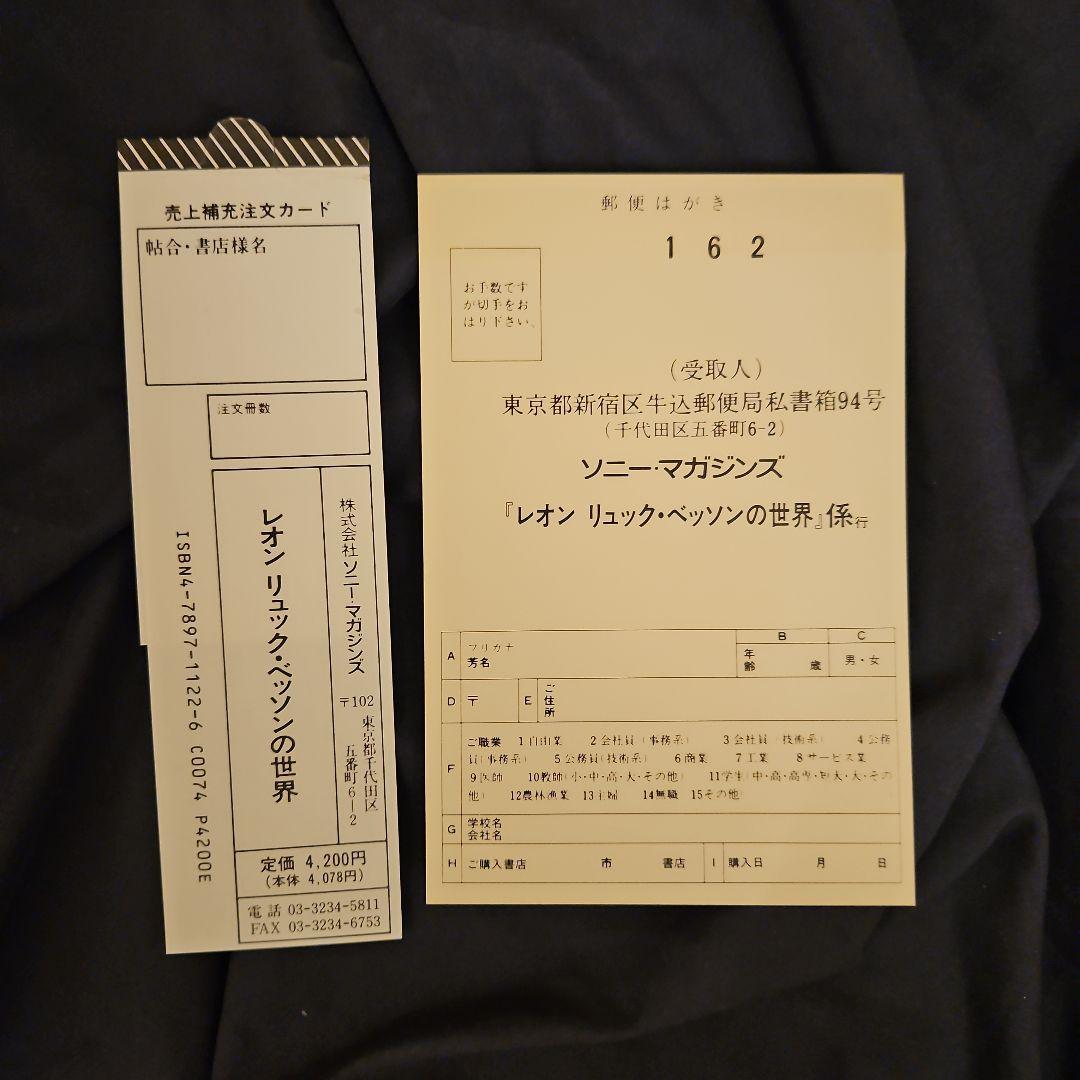 売上補充注文カード
帖合・書店様名
注文冊数
株式会社ソニー・マガジンズ
〒102
東京都千代田区
五番町6-2
レオン リュック・ベッソンの世界
ISBN4-7897-1122-6 C0074 P4200E
定価 4,200円
(本体 4,078円)
電話 03-3234-5811
FAX 03-3234-6753
郵便はがき
162
お手数です
が切手をお
はり下さい。
(受取人)
東京都新宿区牛込郵便局私書箱94号
(千代田区五番町6-2)
ソニー・マガジンズ
『レオン リュック・ベッソンの世界』係行
A フリガナ 芳名 B 年齢 歳 C 男・女
D 〒 E ご住所
F ご職業 1自由業 2会社員(事務系) 3会社員(技術系) 4公務
員(事務系) 5公務員(技術系) 6商業 7工業 8サービス業
9医師 10教師(小・中・高・大・その他) 11学生(中・高・高専・短大・大・その
他) 12農林漁業 13主婦 14無職 15その他
G 学校名 会社名
H ご購入書店 市 書店 I 購入日 月 日